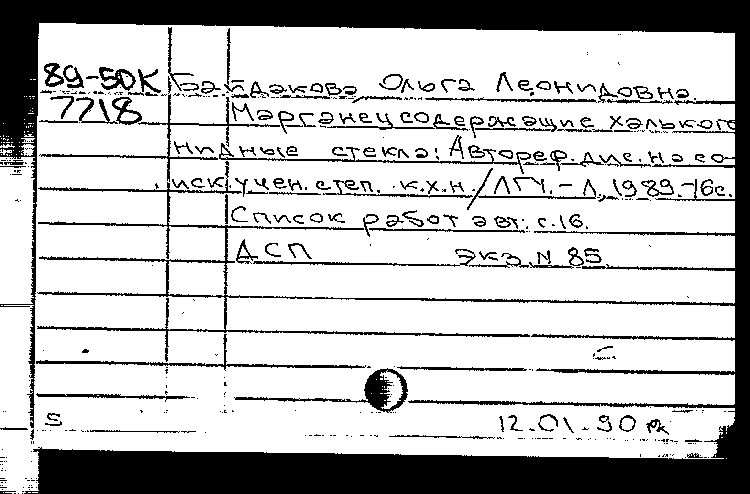 89-50К Байдакова Ольга Леонидовна
7718 Марганецсодержащие халькоге
нидные стекла: Автореф. дис. на со-
иск. учен. степ. к.х.н./ЛГУ.-Л, 1989.-16с.
Список работ авт.: с.16.
ДСП экз. N 85
S 12.01.90